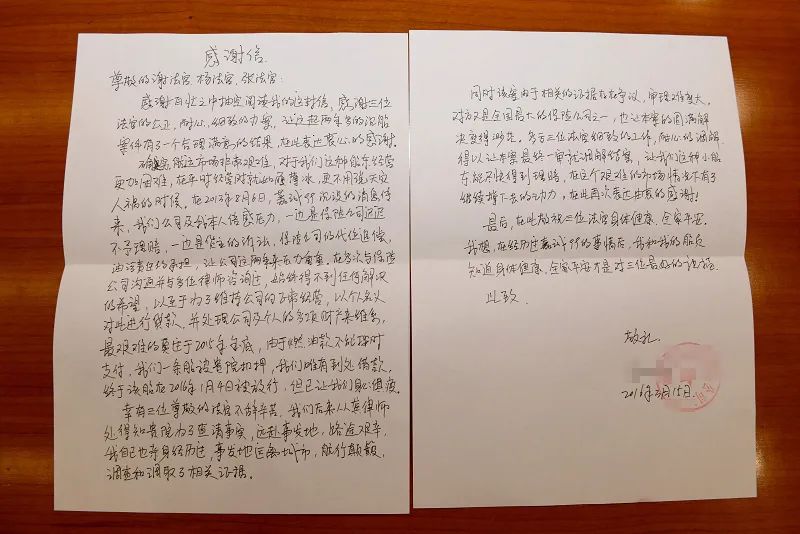 感谢信
尊敬的谢法官、杨法官、张法官：
感谢百忙之中抽空阅读我的这封信，感谢三位
法官的公正，耐心，细致的办案，让这起两年多的沉船
案件有了一个合理满意的结果，在此表达衷心的感谢。
航运市场非常艰难，对于我们这种船东经营
更加困难，在平时经营时就如履薄冰，更不用说天灾
人祸的时候，在2013年2月6日，沉没的消息传
来，我们公司及我本人倍感压力，一边是保险公司迟迟
不予理赔，一边是货主的诉讼，保险公司的代位追偿，
油污责任的承担，让公司这两年来压力重重，在多次与保险
公司沟通并与多位律师咨询过，始终得不到任何解决
的希望，以至于为了维持公司的正常经营，以个人名义
对此进行贷款，并处理公司及个人的多项财产来维系，
最艰难的莫过于2015年年底，由于燃油款不能按时
支付，我们一条船被贵院扣押，我们唯有到处借款，
终于该船在2016年1月4日被放行，但已让我们身心俱疲。
幸有三位尊敬的法官不辞辛苦，我们后来从龚律师
处得知贵院为了查清事实，远赴事发地，路途艰辛，
我自己也亲身经历过，事发地远离城市，航行颠簸，
调查和调取了相关证据。
同时该案由于相关的证据存在争议，审理工作重大，
对方又是全国最大的保险公司之一，也让本案的圆满解
决变得渺茫。多亏三位法官细致的工作，耐心的调解，
得以让本案最终一审就调解结案，让我们这种小船
东能尽快得到理赔，在这个艰难的市场情况下有了
继续撑下去的动力，在此再次表达由衷的感谢！
最后，在此祝三位法官身体健康、全家平安。
我想，在经历过的事情后，我和我的船员
知道身体健康、全家平安才是对三位最好的祝福。
此致
敬礼
2016年3月15日